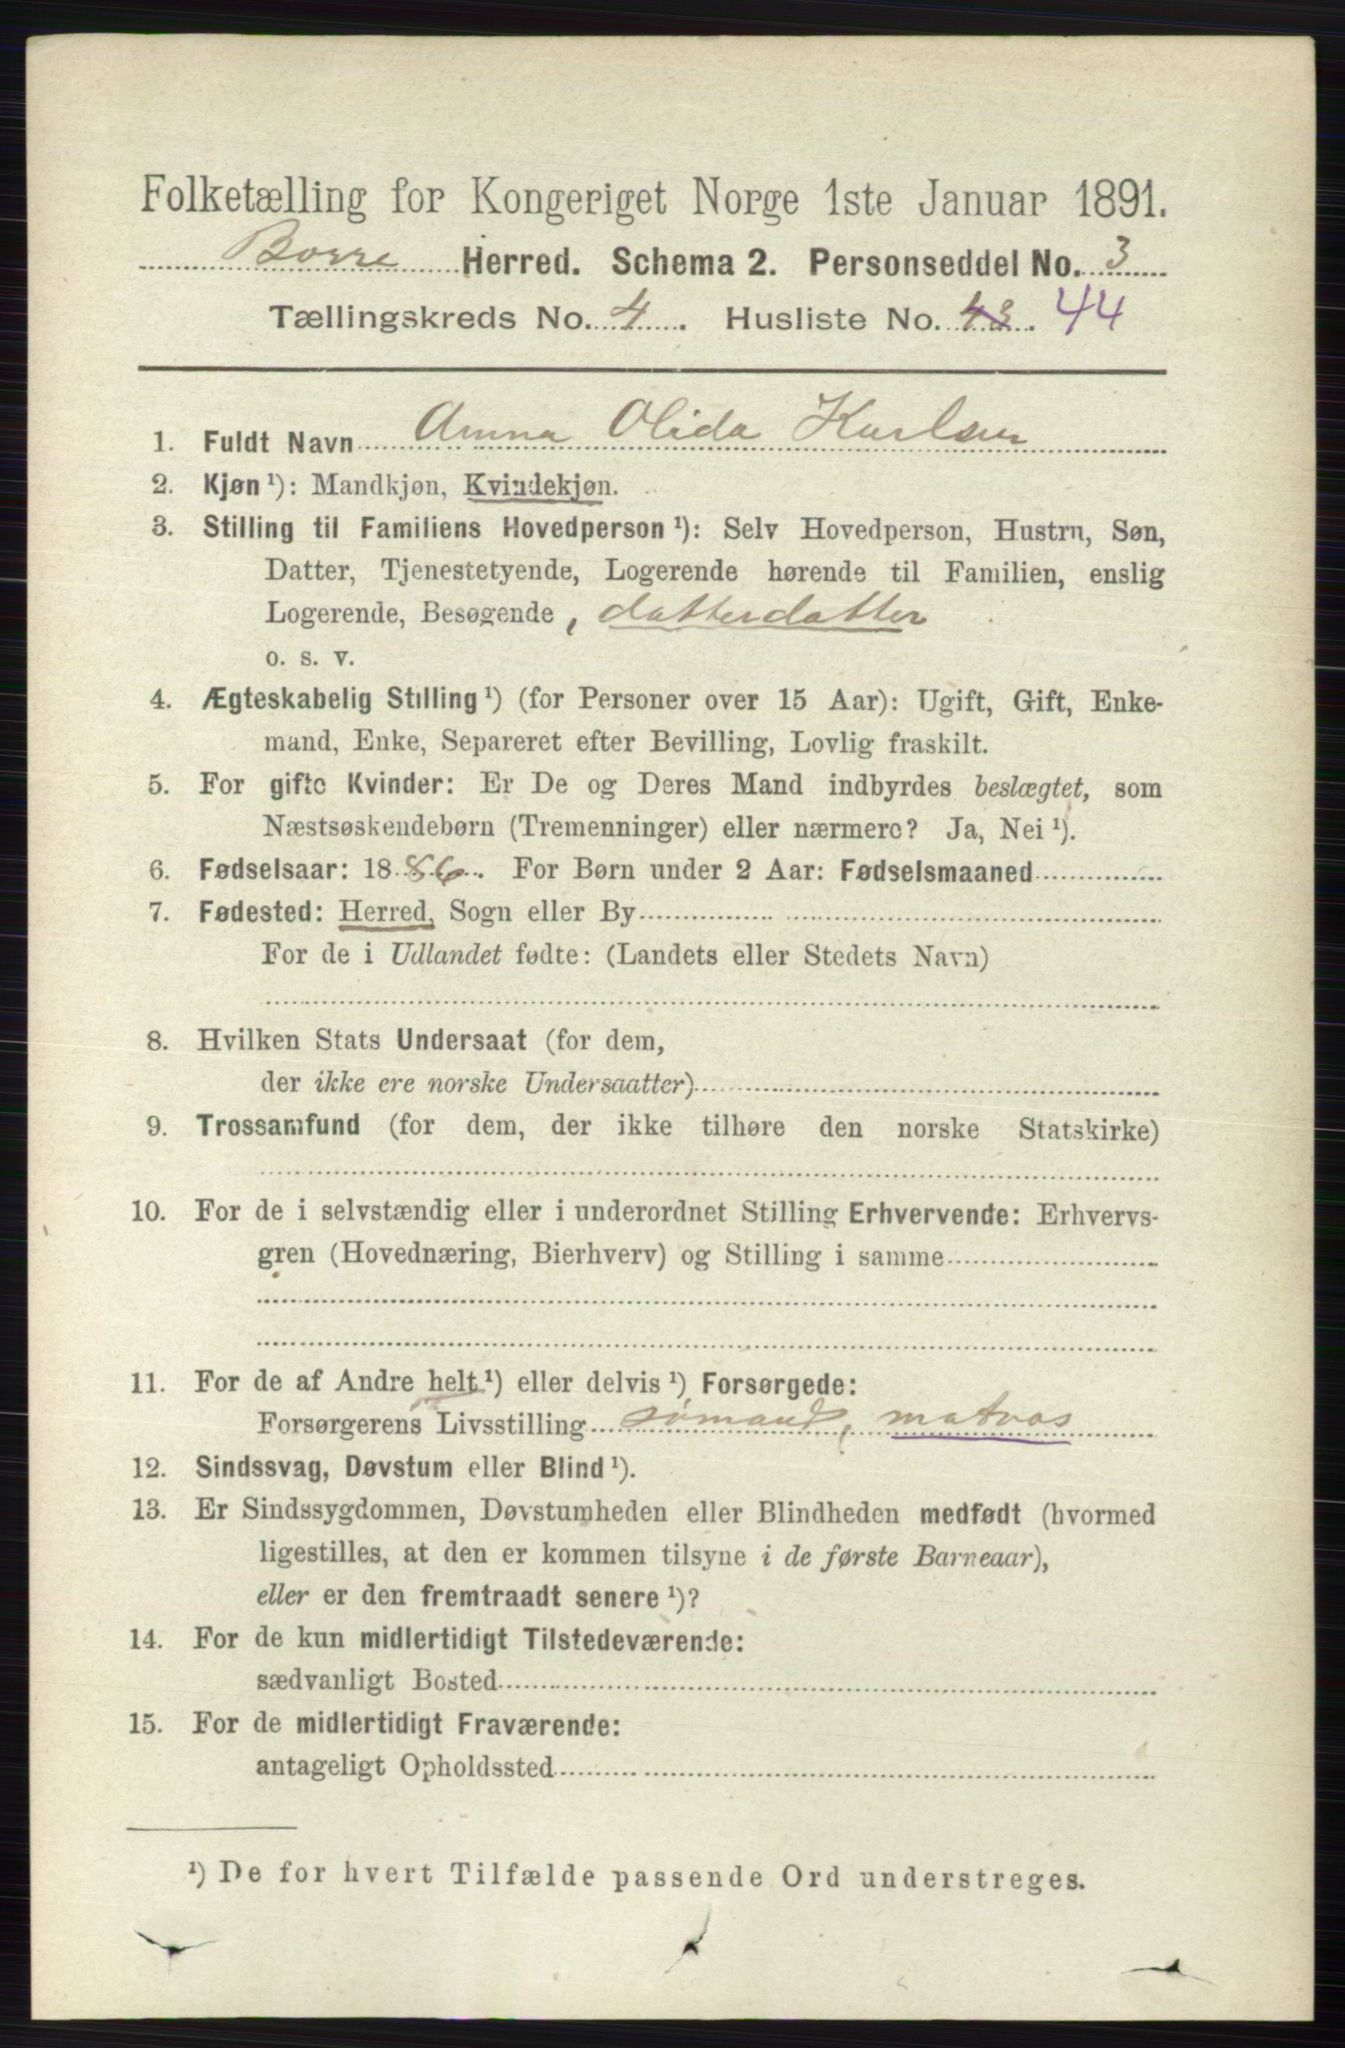 Folketælling for Kongeriget Norge 1ste Januar 1891.
Borre Herred. Schema 2. Personseddel No. 3
Tællingskreds No. 4. Husliste No. 43. 44
1. Fuldt Navn Anna Olida Karlsen
2. Kjøn ¹): Mandkjøn, Kvindekjøn.
3. Stilling til Familiens Hovedperson ¹): Selv Hovedperson, Hustru, Søn,
Datter, Tjenestetyende, Logerende hørende til Familien, enslig
Logerende, Besøgende, datterdatter
o. s. v.
4. Ægteskabelig Stilling ¹) (for Personer over 15 Aar): Ugift, Gift, Enke-
mand, Enke, Separeret efter Bevilling, Lovlig fraskilt.
5. For gifte Kvinder: Er De og Deres Mand indbyrdes beslægtet, som
Næstsøskendebørn (Tremenninger) eller nærmere? Ja, Nei ¹).
6. Fødselsaar: 1886. For Børn under 2 Aar: Fødselsmaaned
7. Fødested: Herred, Sogn eller By
For de i Udlandet fødte: (Landets eller Stedets Navn)
8. Hvilken Stats Undersaat (for dem,
der ikke ere norske Undersaatter)
9. Trossamfund (for dem, der ikke tilhøre den norske Statskirke)
10. For de i selvstændig eller i underordnet Stilling Erhvervende: Erhvervs-
gren (Hovednæring, Bierhverv) og Stilling i samme
11. For de af Andre helt ¹) eller delvis ¹) Forsørgede:
Forsørgerens Livsstilling sømand, matros
12. Sindssvag, Døvstum eller Blind ¹).
13. Er Sindssygdommen, Døvstumheden eller Blindheden medfødt (hvormed
ligestilles, at den er kommen tilsyne i de første Barneaar),
eller er den fremtraadt senere ¹)?
14. For de kun midlertidigt Tilstedeværende:
sædvanligt Bosted
15. For de midlertidigt Fraværende:
antageligt Opholdssted
¹) De for hvert Tilfælde passende Ord understreges.